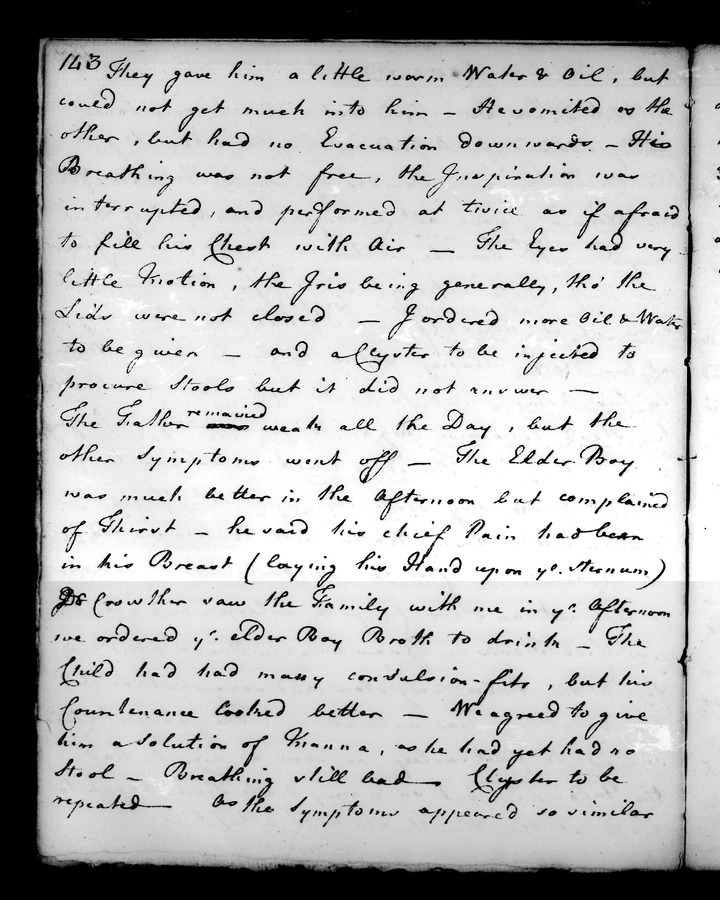 143 They gave him a little warm Water & Oil, but
could not get much into him – He vomited as the
other, but had no Evacuation downwards – His
Breathing was not free, the Inspiration was
interrupted, and performed at twice as if afraid
to fill his Chest with Air — The Eyes had very
little Motion, the Iris being generally, tho' the
Lids were not closed — I ordered more Oil & Water
to be given — and a Clyster to be injected to
procure Stools but it did not answer —
The Father remained weak all the Day, but the
other Symptoms went off — The Elder Boy
was much better in the Afternoon but complained
of Thirst – he said his chief Pain had been
in his Breast (laying his Hand upon ye. sternum)
Dr Crowther saw the Family with me in ye. Afternoon
we ordered ye. elder Boy Broth to drink – The
Child had had many convulsion-fits, but his
Countenance looked better — We agreed to give
him a Solution of Manna, as he had yet had no
Stool – Breathing still bad — Clyster to be
repeated — As the Symptoms appeared so similar